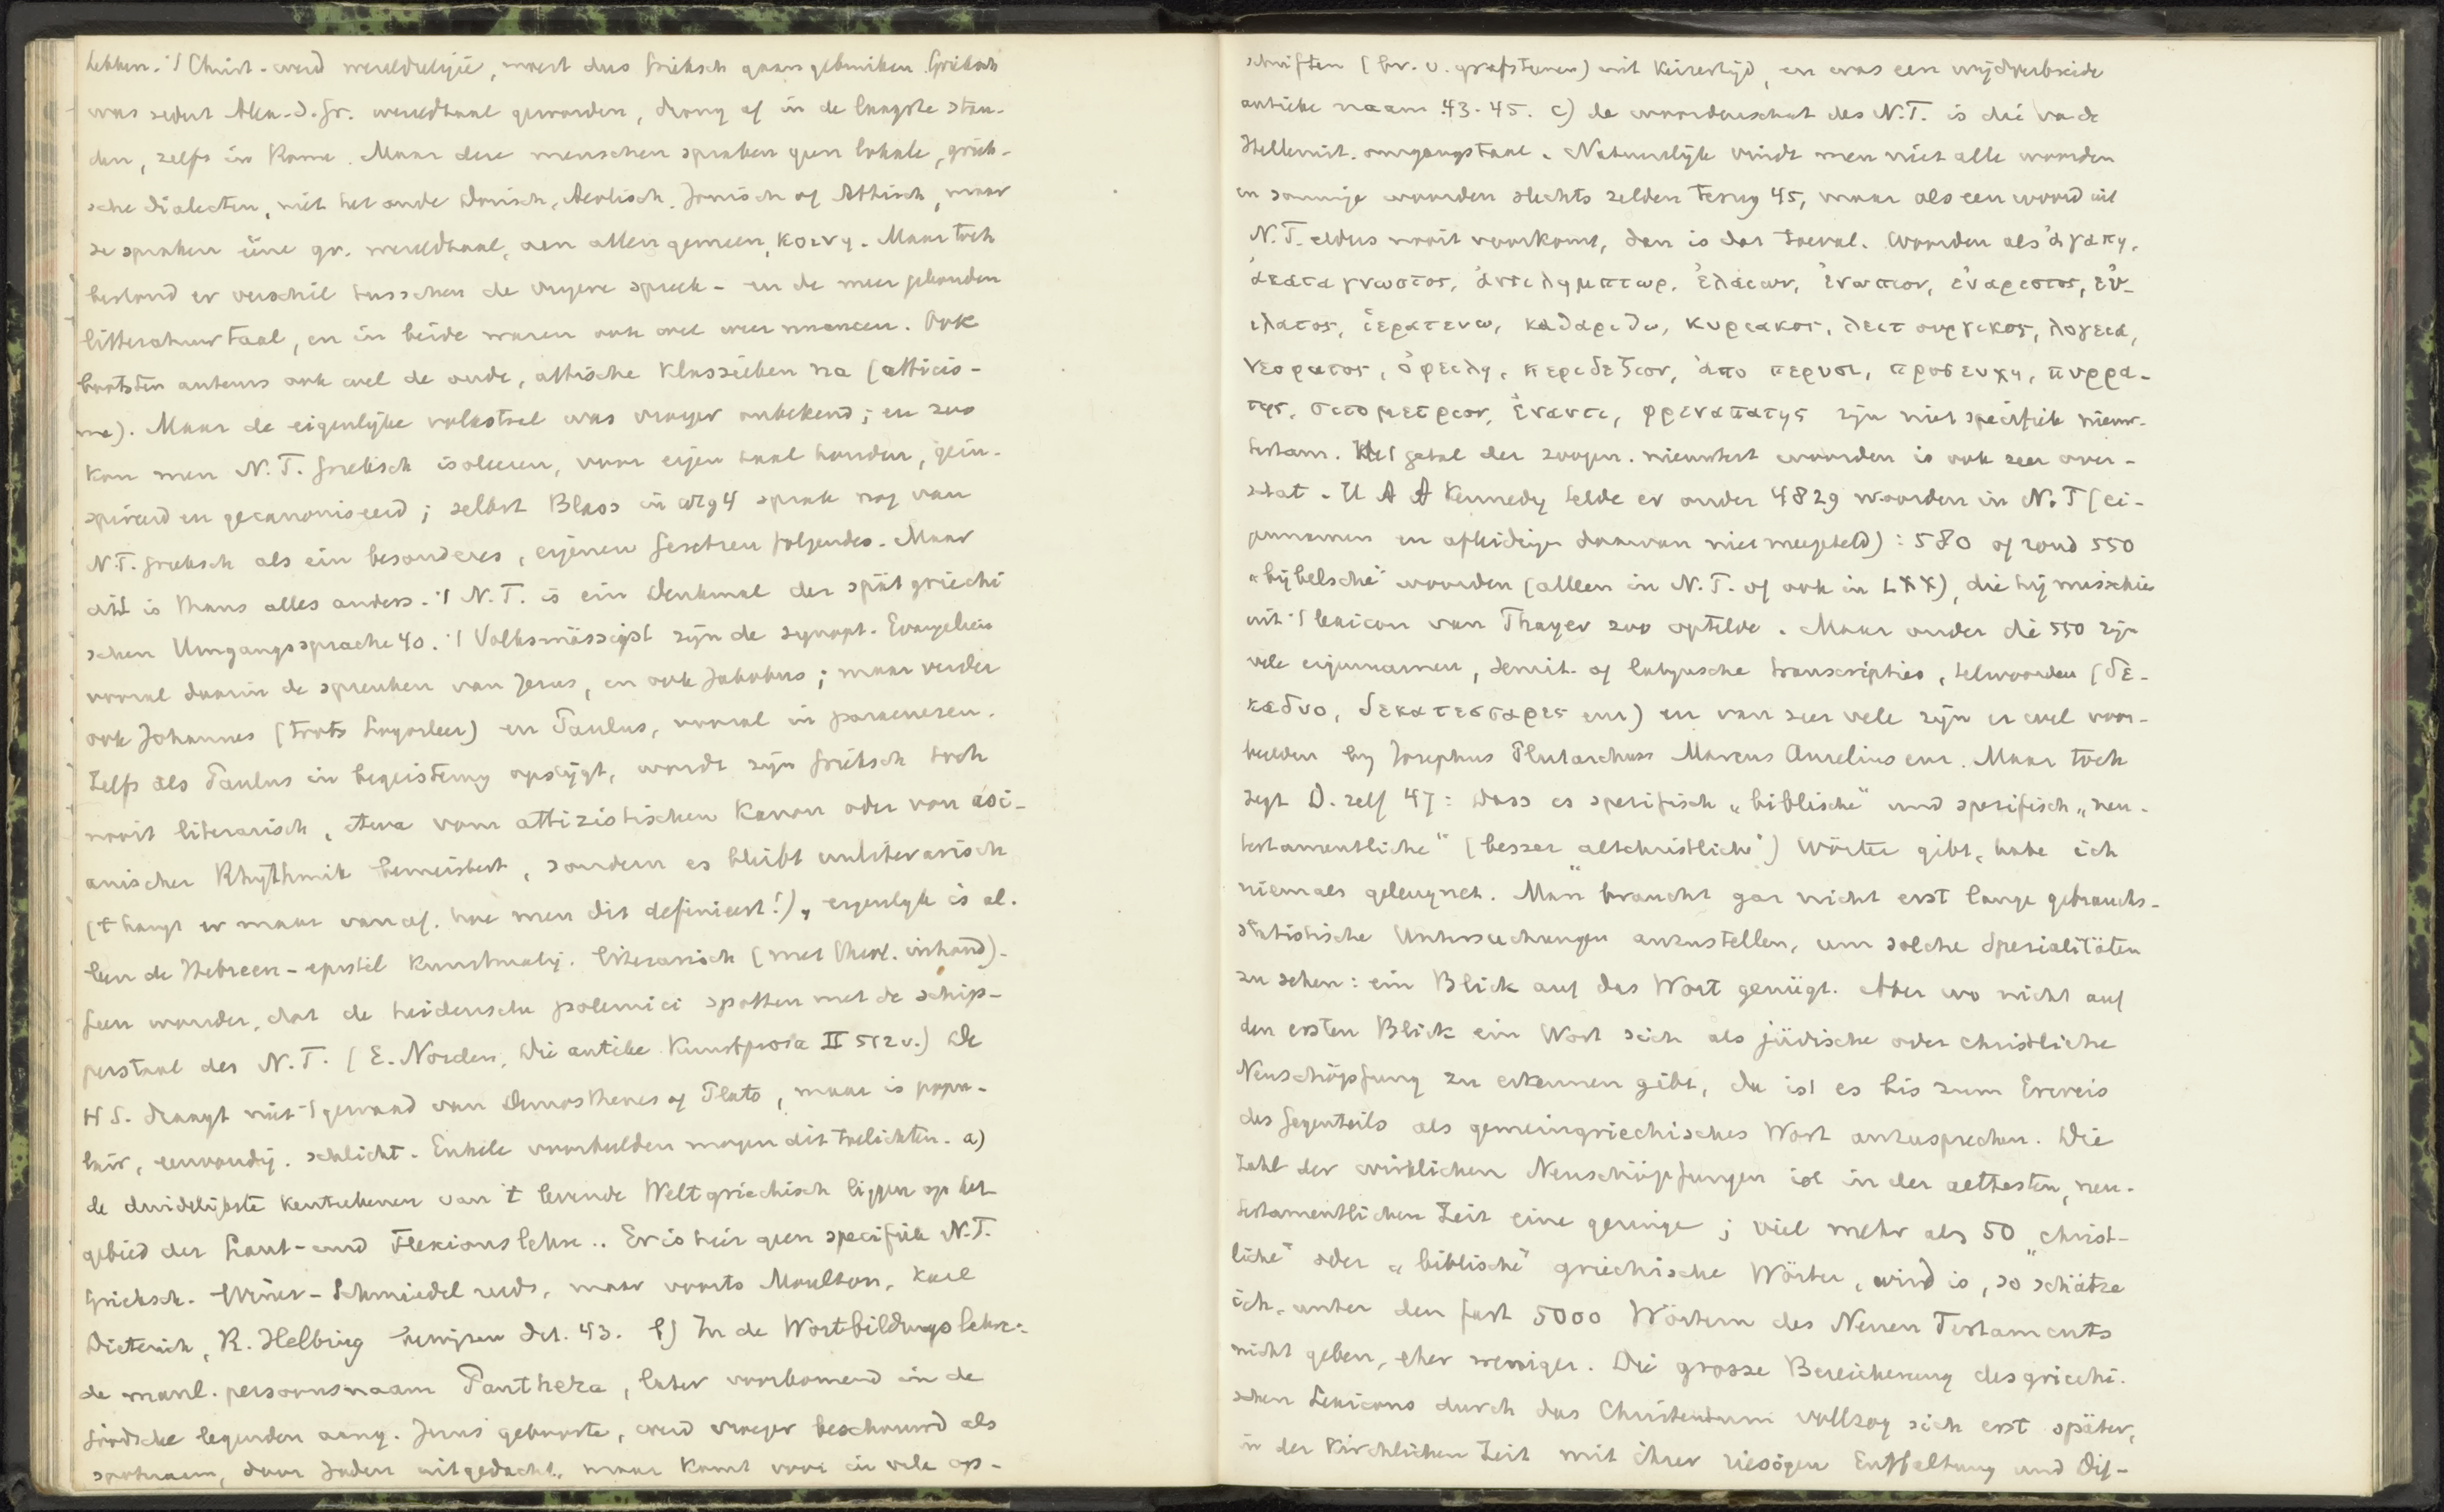 hebben. 't Christ. werd wereldreligie, moest dus Grieksch gaan gebruiken. Grieksch
was sedert Alex. d. Gr. wereldtaal geworden, drong af in de laagste stan-
den, zelfs in Rome. Maar deze menschen spraken geen lokale, griek-
sche dialecten, niet het oude Dorisch, Aeolisch, Jonisch of Attisch, maar
ze spraken ééne gr. wereldtaal, aan allen gemeen, κοινη. Maar toch
bestond er verschil tusschen de vrijere spreek- en de meer gebonden
litteratuurtaal, en in beide waren ook wel weer nuancen. Ook
bootsten auteurs ook wel de oude, attische klassieken na (atticis-
me). Maar de eigenlijke volkstaal was vroeger onbekend; en zoo
kon men N.T. Grieksch isoleeren, voor eigen taal houden, geïn-
spireerd en gecanoniseerd; zelfs Blass in 1894 sprak nog van
N.T. Grieksch als ein besonderes, eigenen Gesetzen folgendes. Maar
dit is thans alles anders. 't N.T. is ein Denkmal der spätgriechi
schen Umgangssprache 40. 't Volksmässigst zijn de synopt. Evangeliën
vooral daarin de spreuken van Jezus, en ook Jakobus; maar verder
ook Johannes (trots Logosleer) en Paulus, vooral in paraenezen.
Zelfs als Paulus in begeistering opstijgt, wordt zijn Grieksch toch
nooit literarisch, etwa vom attizistischen Kanon oder von asi-
anischer Rhythmik bemeistert, sondern es bleibt unliterarisch
('t hangt er maar van af, hoe men dit definieert!), eigenlijk is al-
leen de Hebreen-epistel kunstmatig, literarisch (met theol. inhoud).
Geen wonder, dat de heidensche polemici spotten met de schip-
perstaal des N.T. (E. Norden, Die antike Kunstprosa II 512 v.) De
H S. draagt niet 't gewaad van Demosthenes of Plato, maar is popu-
lair, eenvoudig, schlicht. Enkele voorbeelden mogen dit toelichten. a)
de duidelijkste kenteekenen van 't levende Weltgriechisch liggen op het
gebied der Laut- und Flexionslehre.. Er is hier geen specifiek N.T.
Grieksch. Winer-Schmiedel reeds, maar voorts Moulton, Karl
Dieterich, R. Helbing bewijzen dat. 43. b) In de Wortbildungslehre:
de manl. persoonsnaam Panthera, later voorkomend in de
Joodsche legenden aang. Jezus' geboorte, werd vroeger beschouwd als
spotnaam, door Joden uitgedacht, maar komt voor in vele op-
schriften (bv. v. grafsteenen) uit keizertijd, en was een wijdverbreide
antieke naam 43-45. c) de woordenschat des N.T. is die va de
Hellenist. omgangstaal. Natuurlijk vindt men niet alle woorden
en sommige woorden slechts zelden terug 45, maar als een woord uit
N.T. elders nooit voorkomt, dan is dat toeval. Woorden als ἀγαπη,
ἀκαταγνωστος, ἀντιλημπτωρ, ἐλαιων, ἐνωπιον, εὐαρεστος, εὐ-
ιλατος, ἱερατευω, καθαριζω, κυριακος, λειτουργικος, λογεια,
νεοφυτος, ὀφειλη, περιδεξιον, ἀπο περυσι, προσευχη, πυρρα-
της, σιτομετριον, ἐναντι, φρεναπατης zijn niet specifiek nieuw-
testam. Het getal der zoogen. nieuwtest woorden is ook zeer over-
schat. H A A Kennedy telde er onder 4829 woorden in N.T (ei-
gennamen en afleidingen daarvan niet meegeteld): 580 of rond 550
"bijbelsche" woorden (alleen in N.T. of ook in LXX), die hij misschien
uit 't lexicon van Thayer zoo optelde. Maar onder die 550 zijn
vele eigennamen, semit. of latijnsche transcripties, telwoorden (δε-
καδυο, δεκατεσσαρες enz) en van zeer vele zijn er wel voor-
beelden bij Josephus Plutarchus Marcus Aurelius enz. Maar toch
zegt D. zelf 47: Dass es spezifisch „biblische" und spezifisch „neu-
testamentliche" (besser altchristliche") Wörter gibt, habe ich
niemals geleugnet. Man braucht gar nicht erst lange gebrauchs-
statistische Untersuchungen anzustellen, um solche Spezialitäten
zu sehen: ein Blick auf das Wort genügt. Aber wo nicht auf
den ersten Blick ein Wort sich als jüdische oder christliche
Neuschöpfung zu erkennen gibt, da ist es bis zum Erweis
des Gegenteils als gemeingriechisches Wort anzusprechen. Die
Zahl der wirklichen Neuschöpfungen ist in der aeltesten, neu-
testamentlichen Zeit eine geringe; viel mehr als 50 "christ-
liche" oder „biblische" griechische Wörter, wird is, so schätze
ich, unter den fast 5000 Wörtern des Neuen Testaments
nicht geben, eher weniger. Die grosse Bereicherung des griechi-
schen Lexicons durch das Christentum vollzog sich erst später,
in der kirchlichen Zeit mit ihrer riesigen Entfaltung und Dif-